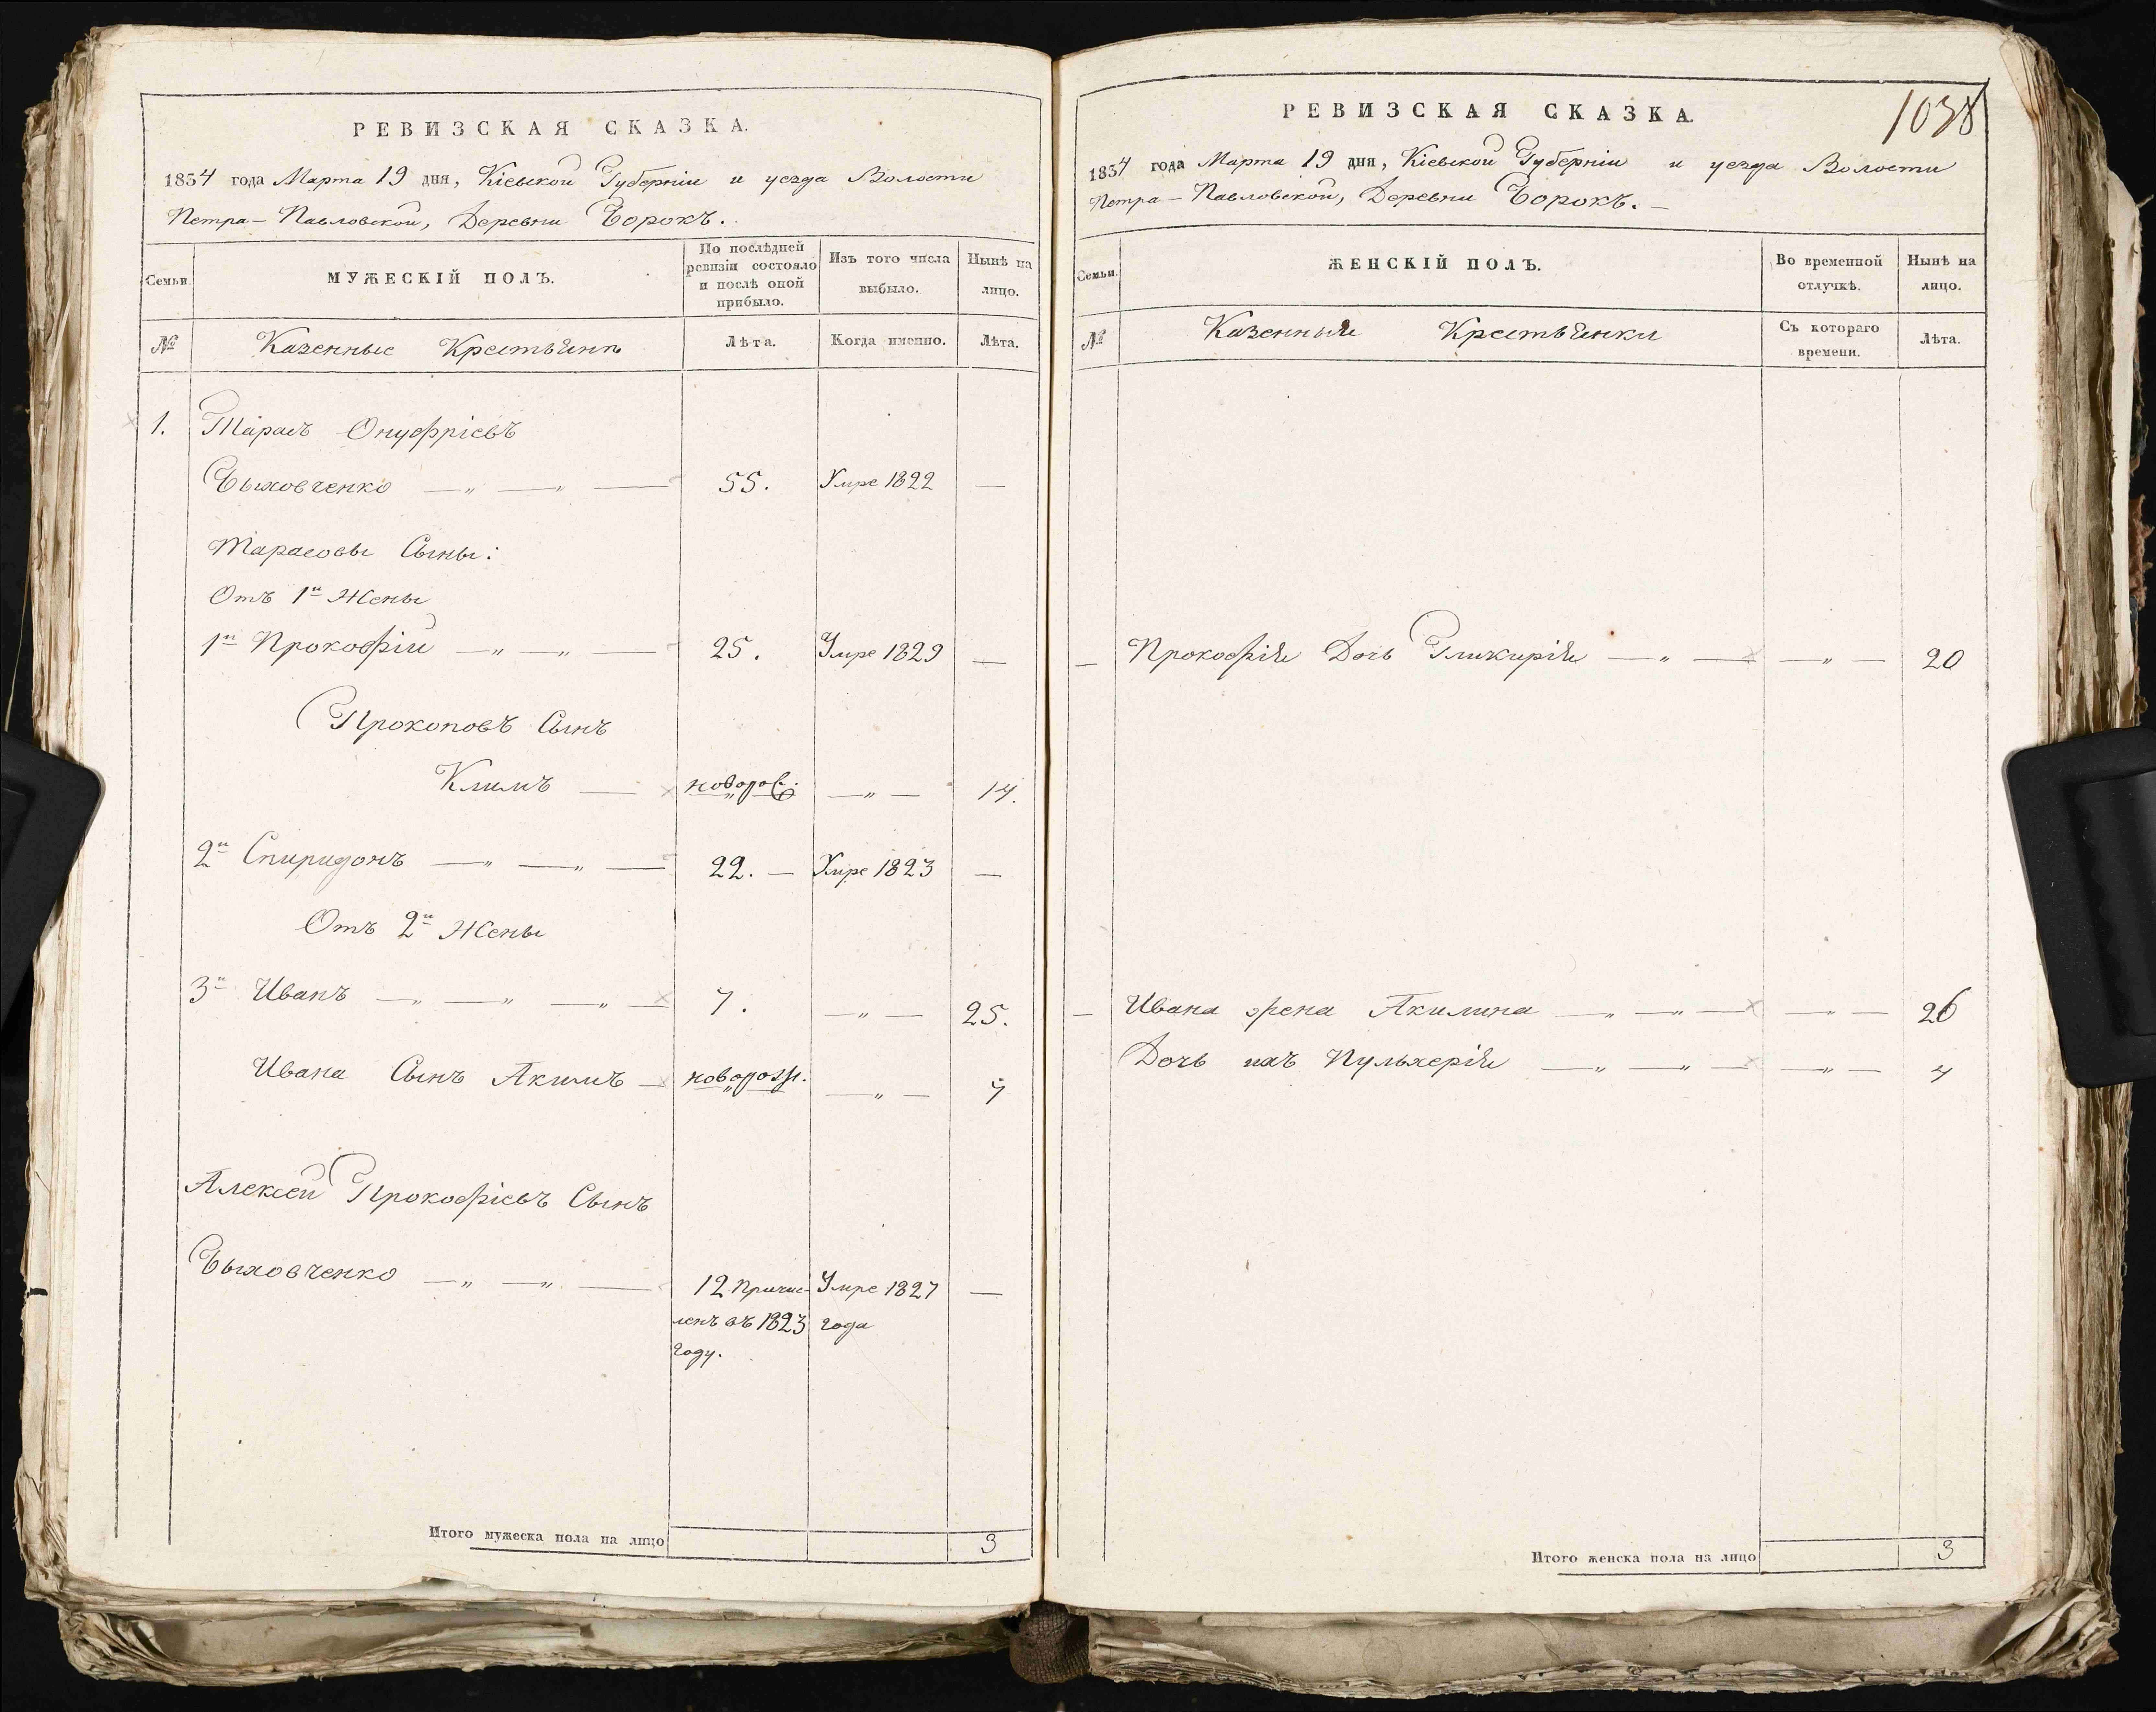 РЕВИЗСКАЯ СКАЗКА.
1834 года Марта 19 дня, Кіевской Губерніи и уезда Волости
Петра-Павловской, Деревни Борокъ.
Семьи
МУЖЕСКІЙ ПОЛЪ.
По послѣдней ревизіи состояло и послѣ оной прибыло.
Изъ того числа выбыло.
Нынѣ на лицо.
№
Казенные Крестьяне
Лѣта.
Когда именно.
Лѣта.
1. Тарасъ Онуфріевъ
Быховченко —„— —„— — 55. Умре 1822 —
Тарасовы Сыны:
Отъ 1й Жены
1й Прокофій —„— —„— — 25. Умре 1829 —
Прокоповъ Сынъ
Климъ — новорож. —„— 14.
2й Спиридонъ —„— —„— — 22. — Умре 1823 —
Отъ 2й Жены
3й Иванъ —„— —„— —„— 7. —„— 25.
Ивана Сынъ Акимъ — новорож. —„— 7
Алексей Прокофіевъ Сынъ
Быховченко —„— —„— — 12 Причис- Умре 1827 —
ленъ въ 1823 года
году.
Итого мужеска пола на лицо 3
1038
РЕВИЗСКАЯ СКАЗКА.
1834 года Марта 19 дня, Кіевской Губерніи и уезда Волости
Петра-Павловской, Деревни Борокъ. —
Семьи.
ЖЕНСКІЙ ПОЛЪ.
Во временной отлучкѣ.
Нынѣ на лицо.
№
Казенныя Крестьянки
Съ котораго времени.
Лѣта.
— Прокофія Дочь Гликирія —„— — —„— 20
— Ивана жена Акилина —„— —„— —„— 26
Дочь ихъ Пульхерія —„— —„— —„— 4
Итого женска пола на лицо 3